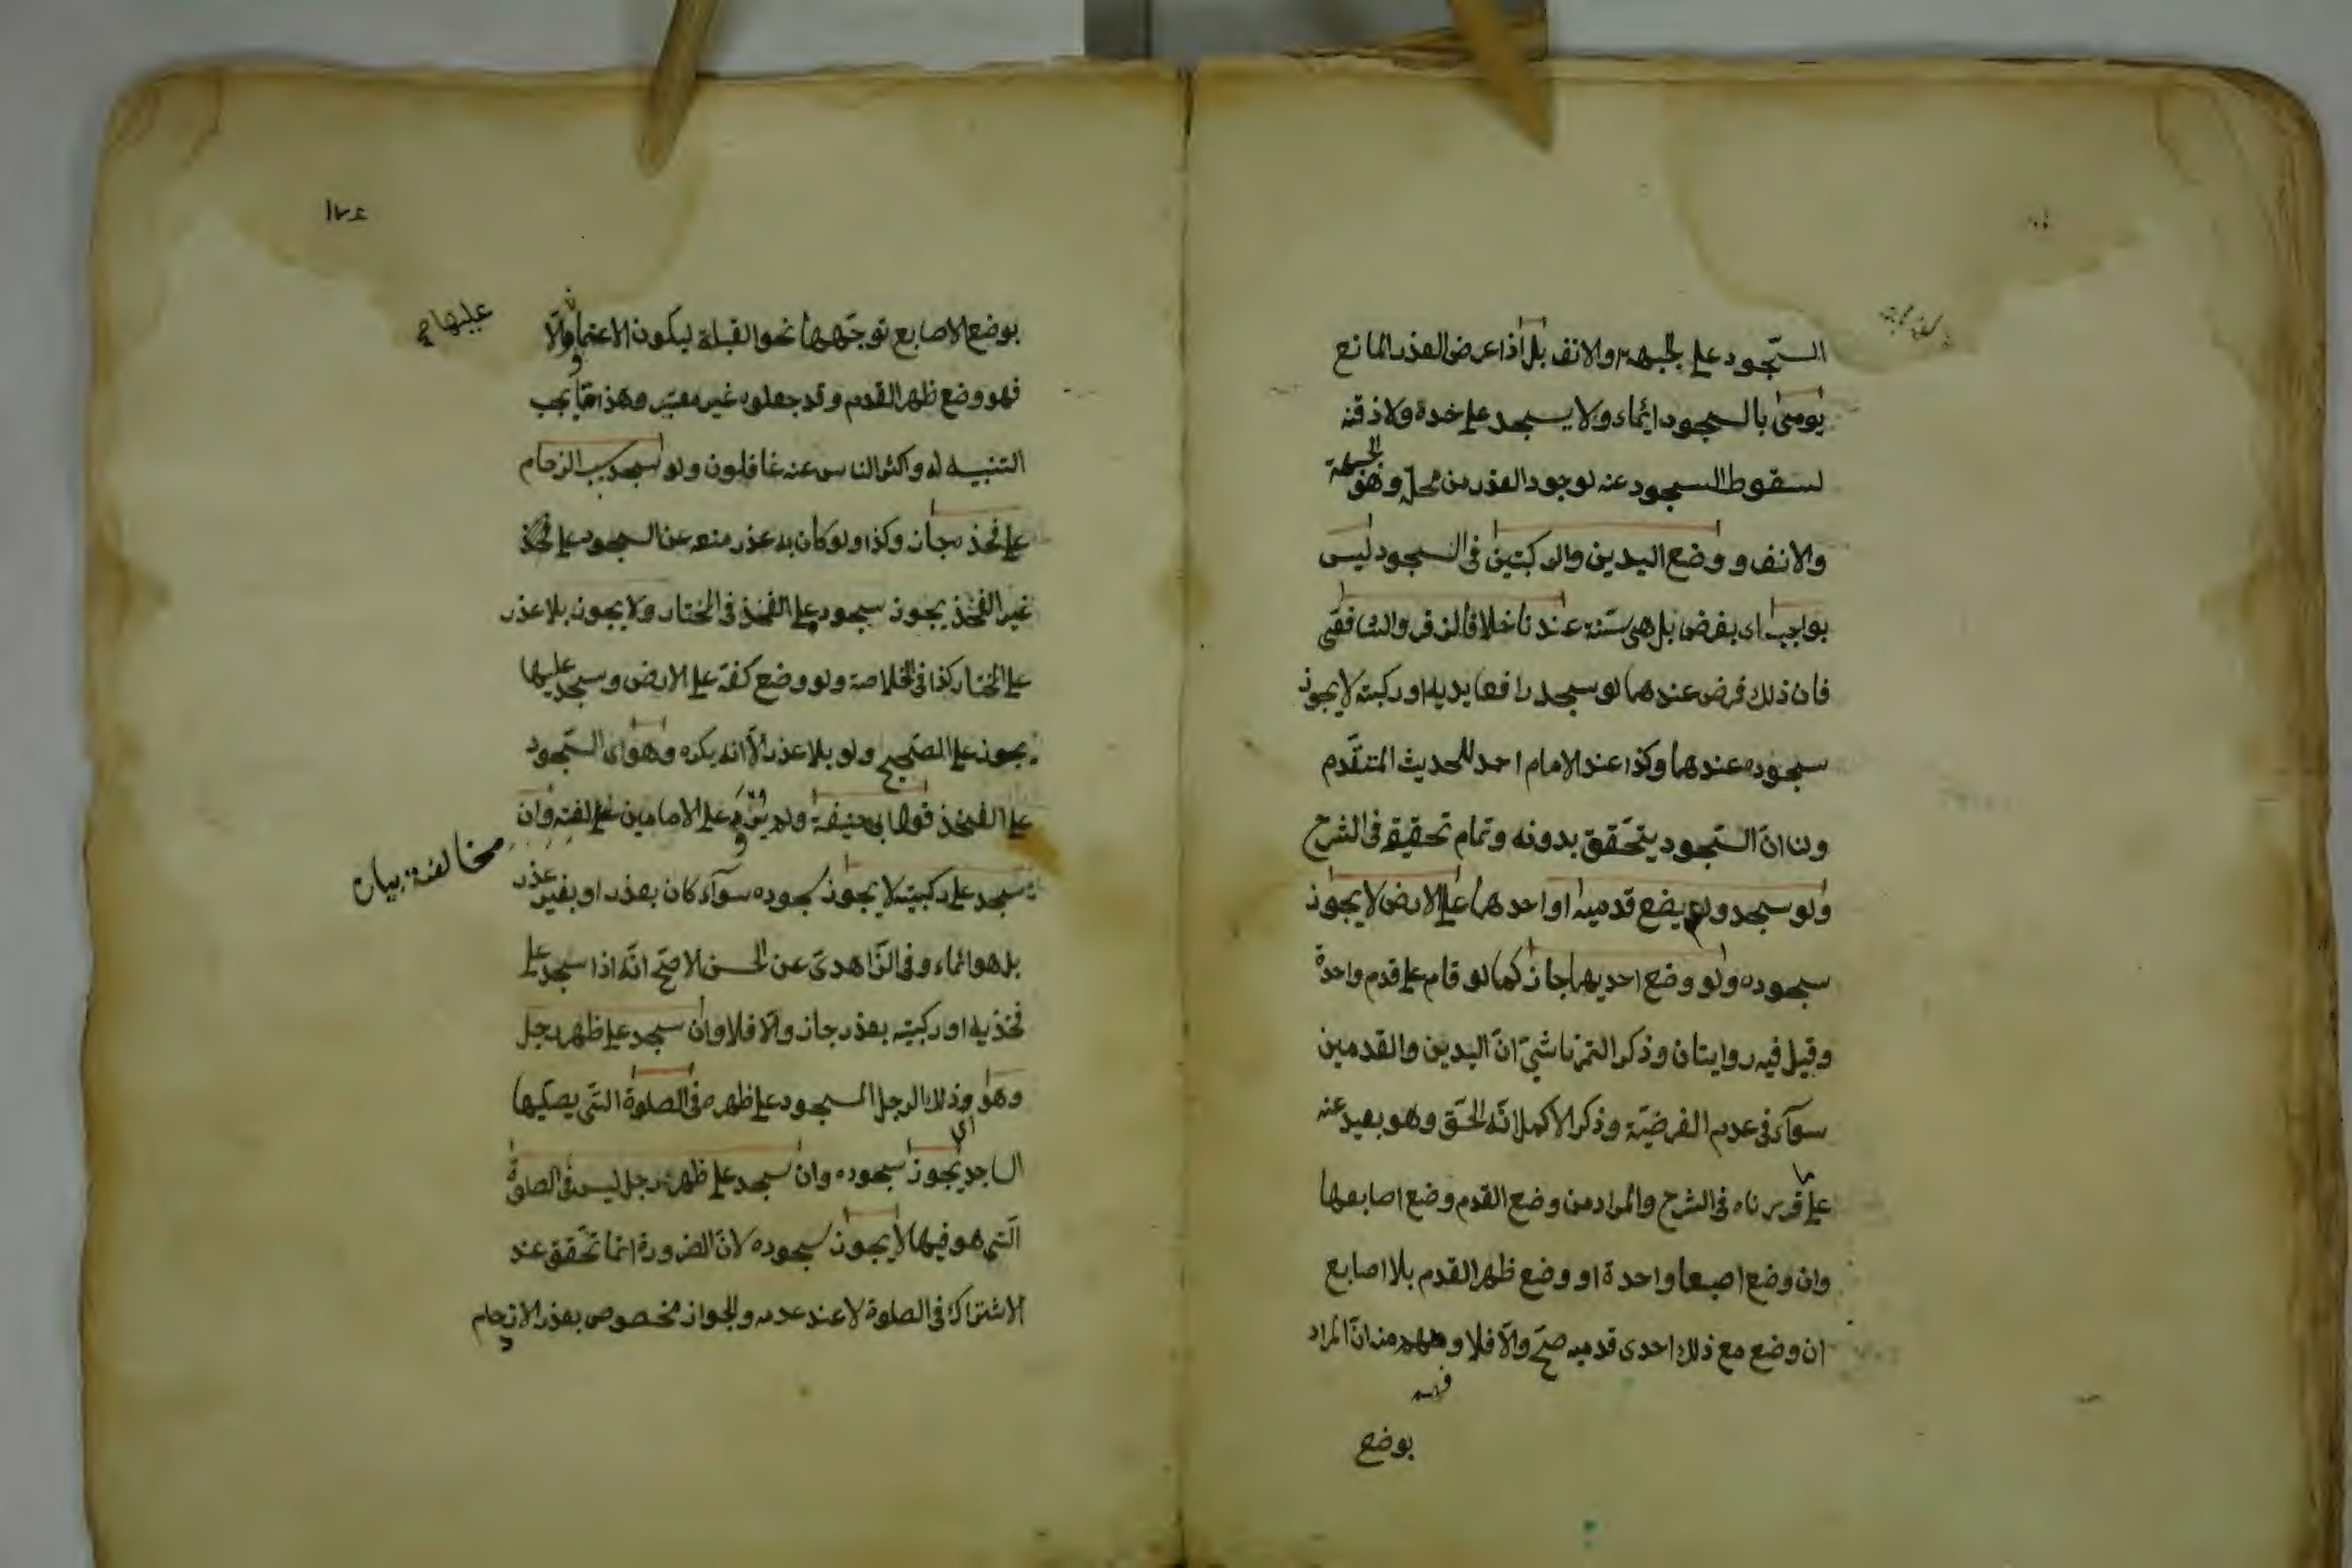 السّجود على الجبهة والانف بل اذا عرض العذر المانع
يومئ بالسجود ايماء ولا يسجد على خده ولا ذقنه
لسقوط السجود عنه لوجود العذر من محله وهو الجبهة
والانف و وضع اليدين والركبتين فى السجود ليس
بواجب اى بفرض بل هى سنّة عندنا خلافا لزفر والشافعى
فان ذلك فرض عندهما لو سجد رافعا يديه او ركبته لا يجوز
سجوده عندهما وكذا عند الامام احمد للحديث المتقدّم
ولنا انّ السّجود يتحقق بدونه وتمام تحقيقه فى الشرح
ولو سجد ولم يضع قدميه او احدهما على الارض لا يجوز
سجوده ولو وضع احديهما جاز كما لو قام على قدم واحدة
وقيل فيه روايتان وذكر التمرتاشىّ انّ اليدين والقدمين
سوآء فى عدم الفرضيّة وذكر الاكمل انّه الحقّ وهو بعيد عنه
على ما قررناه فى الشرح والمراد من وضع القدم وضع اصابعها
وان وضع اصبعا واحدة او وضع ظهر القدم بلا اصابع
ان وضع مع ذلك احدى قدميه صحّ والّا فلا وفهم منه انّ المراد
فهم
بوضع
١٧٤
بوضع الاصابع توجّهها نحو القبلة ليكون الاعتماد والّا
عليها
فهو وضع ظهر القدم وقد جعلوه غير معتبر وهذا ممّا يجب
التنبيه له واكثر الناس عنه غافلون ولو سجد بسبب الزحام
على فخذه جاز وكذا ولو كان به عذر منعه عن السجود على
غير الفخذ يجوز سجوده على الفخذ فى المختار ولا يجوز بلا عذر
على المختار كذا فى الخلاصة ولو وضع كفّه على الارض وسجد عليها
يجوز على الصّحيح ولو بلا عذر الّا انه يكره وهو اى السّجود
على الفخذ قول ابى حنيفة ولم على الامامين وان
مخالفة بيان
سجد على ركبتيه لا يجوز سجوده سوآء كان بعذر او بغير عذر
بل هو ايماء وفى الزّاهدىّ عن الحسن الاصحّ انّه اذا سجد على
فخذيه او ركبتيه بعذر جاز والّا فلا وان سجد على ظهر رجل
وهو اى وذلك الرجل المسجود على ظهره فى الصلوة التى يصلّيها
الساجد يجوز سجوده وان سجد على ظهر رجل ليس فى الصلوة
الّتى هو فيها لا يجوز سجوده لانّ الضرورة انّما تحقق عند
الاشتراك فى الصلوة لا عند عدمه والجواز مخصوص بعذر الازدحام